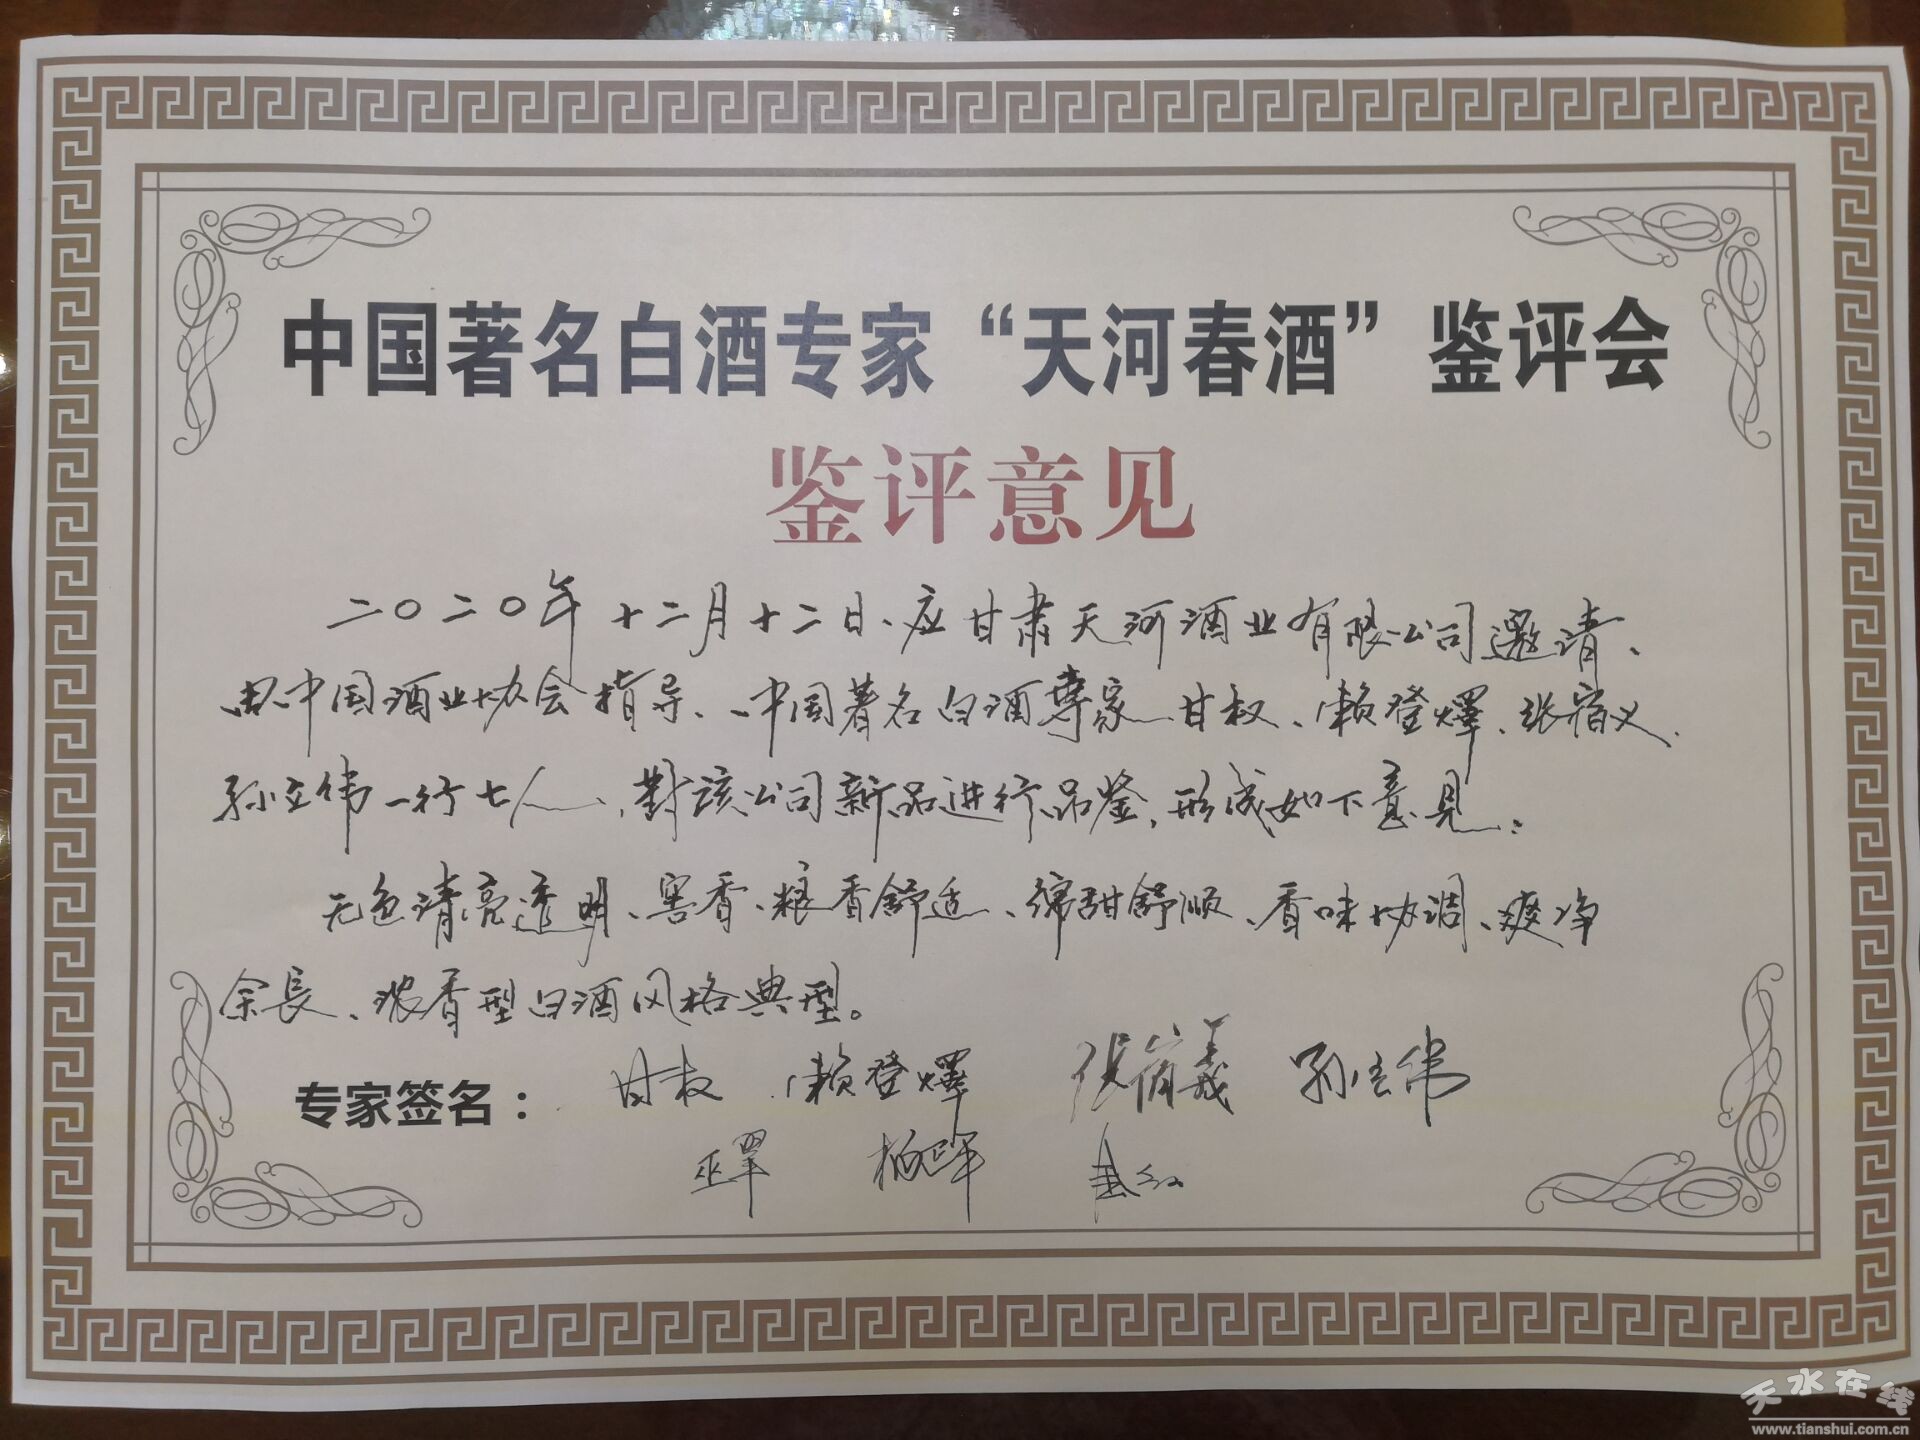 中国著名白酒专家“天河春酒”鉴评会
鉴评意见
二〇二〇年十二月十二日、应甘肃天河酒业有限公司邀请、
由中国酒业协会指导、中国著名白酒专家甘权、赖登燡、张宿义、
孙立伟一行七人、對该公司新品进行品鉴，形成如下意见：
无色清亮透明、窖香、粮香舒适、绵甜舒顺、香味协调、爽净
余長、浓香型白酒风格典型。
专家签名： 甘权 赖登燡 张宿義 孙立伟
天水在线
www.tianshui.com.cn